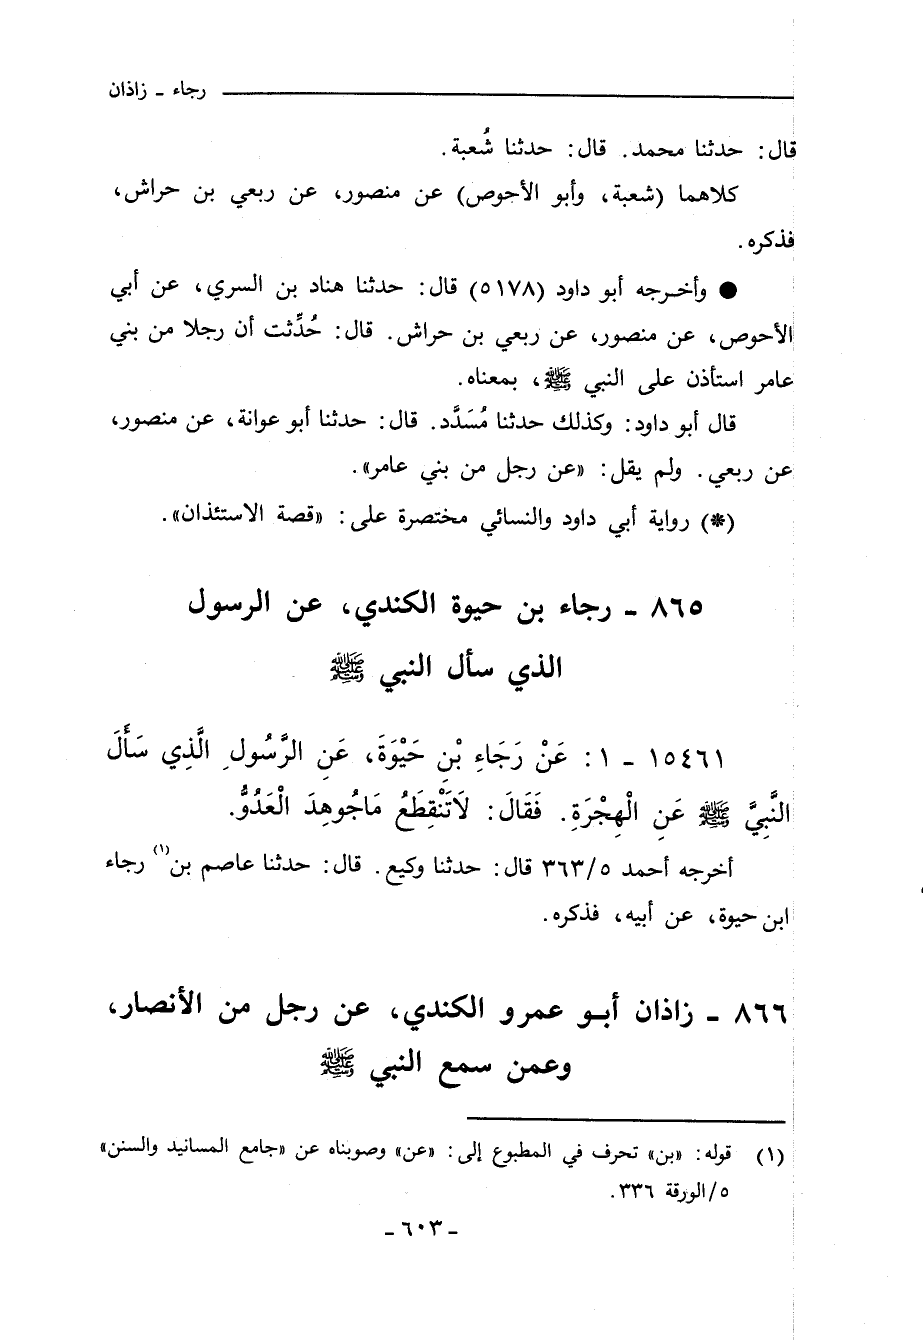 رجاء ـ زاذان
قال: حدثنا محمد. قال: حدثنا شُعبة.
كلاهما (شعبة، وأبو الأحوص) عن منصور، عن ربعي بن حراش،
فذكره.
● وأخرجه أبو داود (٥١٧٨) قال: حدثنا هناد بن السري، عن أبي
الأحوص، عن منصور، عن ربعي بن حراش. قال: حُدِّثت أن رجلا من بني
عامر استأذن على النبي ﷺ، بمعناه.
قال أبو داود: وكذلك حدثنا مُسَدَّد. قال: حدثنا أبو عوانة، عن منصور،
عن ربعي. ولم يقل: «عن رجل من بني عامر».
(*) رواية أبي داود والنسائي مختصرة على: «قصة الاستئذان».
٨٦٥ ـ رجاء بن حيوة الكندي، عن الرسول
الذي سأل النبي ﷺ
١٥٤٦١ ـ ١: عَنْ رَجَاءِ بْنِ حَيْوَةَ، عَنِ الرَّسُولِ الَّذِي سَأَلَ
النَّبِيَّ ﷺ عَنِ الْهِجْرَةِ. فَقَالَ: لَاتَنْقِطَعُ مَاجُوهِدَ الْعَدُوُّ.
أخرجه أحمد ٣٦٣/٥ قال: حدثنا وكيع. قال: حدثنا عاصم بن(١) رجاء
ابن حيوة، عن أبيه، فذكره.
٨٦٦ ـ زاذان أبو عمرو الكندي، عن رجل من الأنصار،
وعمن سمع النبي ﷺ
(١) قوله: «بن» تحرف في المطبوع إلى: «عن» وصوبناه عن «جامع المسانيد والسنن»
٥/الورقة ٣٣٦.
ـ ٦٠٣ ـ